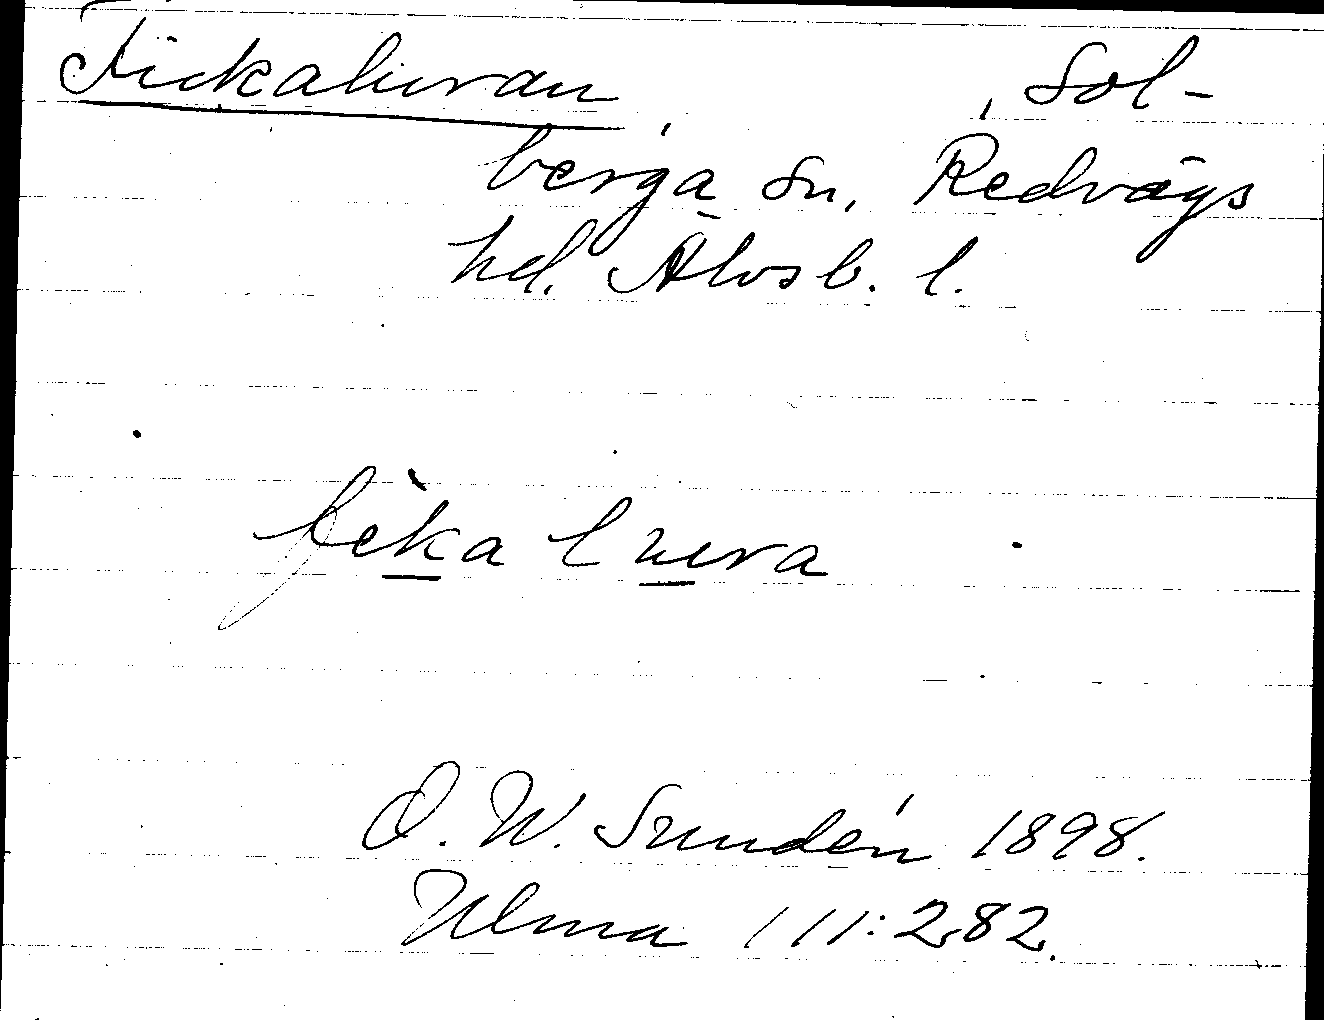 Fickaluvan, Sol-
berga sn, Redvägs
hd. Älvsb. l.
fèka luva
O. W. Sundén 1898.
Ulma 111:282.